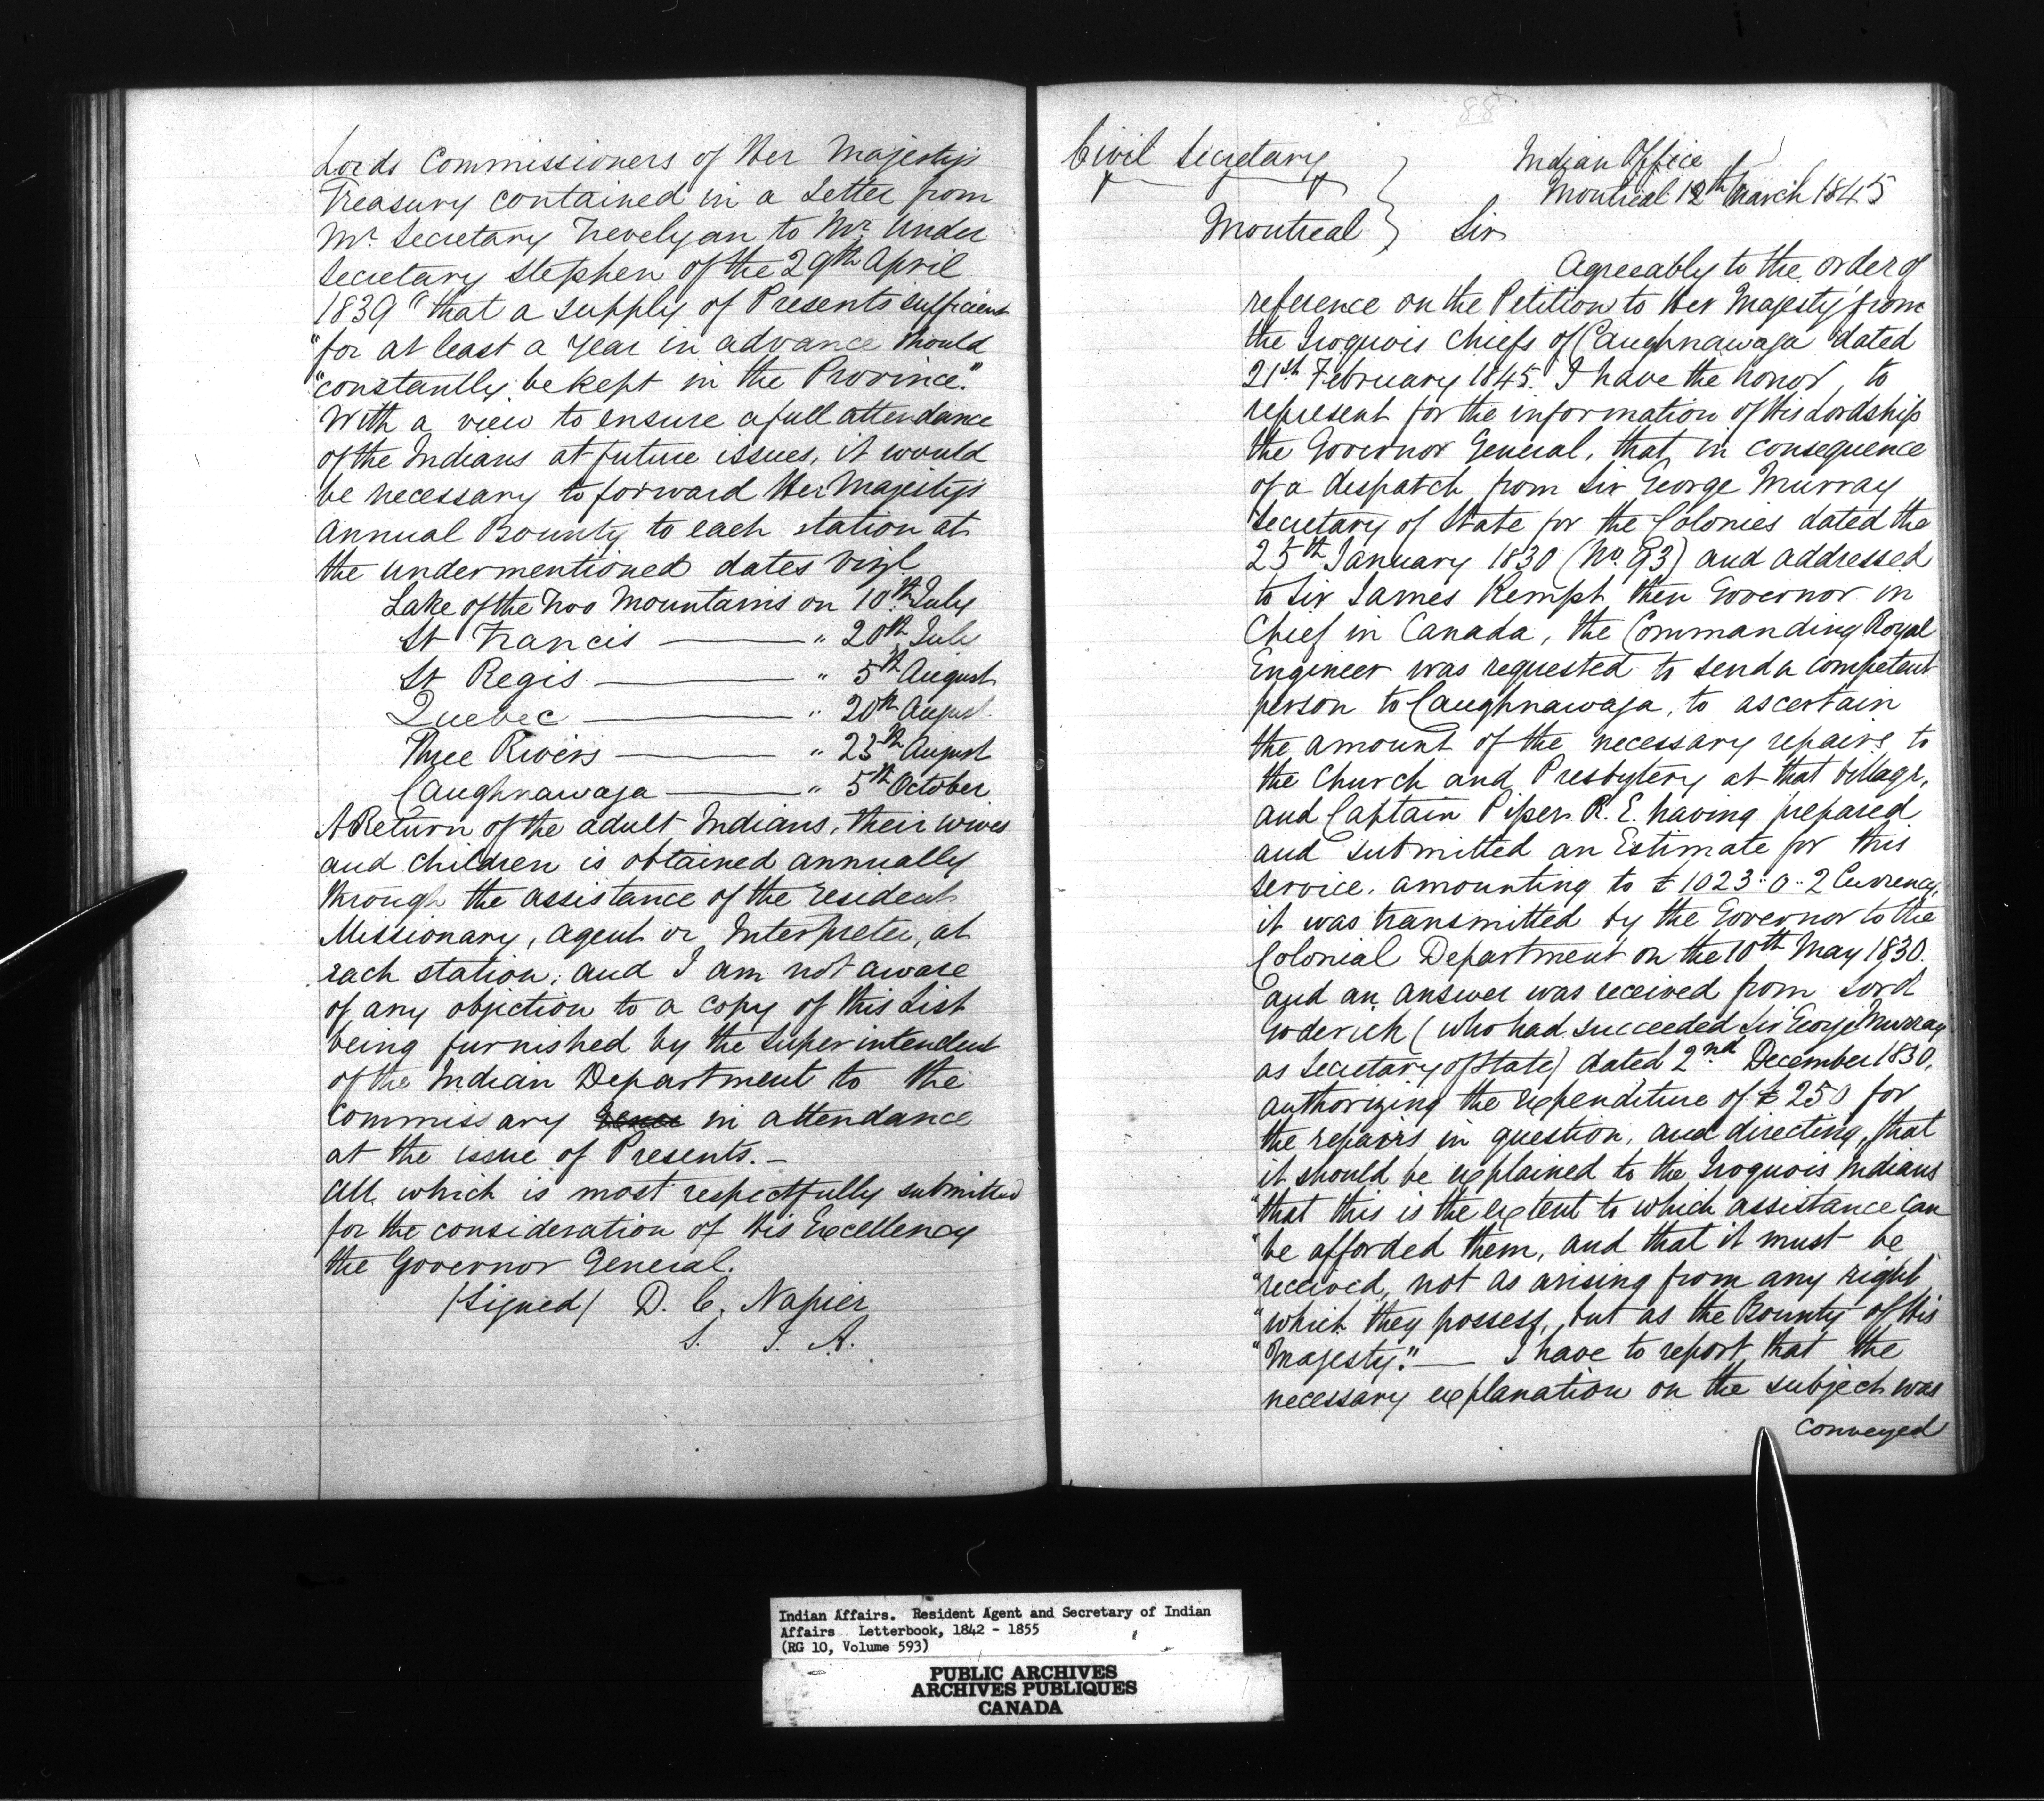 Lords Commissioners of Her Majesty's
Treasury contained in a Letter from
Mr. Secretary Trevelyan to Mr. Under
Secretary Stephen of the 29th April
1839 "that a supply of Presents sufficient
"for at least a year in advance should
"constantly be kept in the Province."
With a view to ensure a full attendance
of the Indians at future issues, it would
be necessary to forward Her Majesty's
Annual Bounty to each station at
the undermentioned dates vizt
Lake of the Two Mountains on 10th July
St Francis — " 20th July
St Regis — " 5th August
Quebec — " 20th August
Three Rivers — " 25th August
Caughnawaga — " 5th October
A Return of the adult Indians, their wives
and children is obtained annually
through the assistance of the resident
Missionary, agent or Interpreter, at
each station; and I am not aware
of any objection to a copy of this List
being furnished by the Superintendent
of the Indian Department to the
Commissary in attendance
at the issue of Presents. —
All which is most respectfully submitted
for the consideration of His Excellency
the Governor General.
(Signed) D. C. Napier
S. I. A.
88
Civil Secretary
Montreal
Indian Office
Montreal 12th March 1845
Sir
Agreeably to the order of
reference on the Petition to Her Majesty from
the Iroquois Chiefs of Caughnawaga dated
21st February 1845. I have the honor, to
represent for the information of His Lordship
the Governor General, that, in consequence
of a dispatch from Sir George Murray
Secretary of State for the Colonies dated the
25th January 1830 (No. 93) and addressed
to Sir James Kempt then Governor in
Chief in Canada, the Commanding Royal
Engineer was requested to send a competent
person to Caughnawaga, to ascertain
the amount of the necessary repairs to
the Church and Presbytery at that village,
and Captain Piper R. E. having prepared
and submitted an Estimate for this
service, amounting to £1023..0..2 Currency,
it was transmitted by the Governor to the
Colonial Department on the 10th May 1830.
and an answer was received from Lord
Goderich (who had succeeded Sir George Murray
as Secretary of State) dated 2nd December 1830,
authorizing the expenditure of £250 for
the repairs in question, and directing, that
it should be explained to the Iroquois Indians
"that this is the extent to which assistance can
"be afforded them, and that it must be
"received, not as arising from any right
"which they possess, but as the Bounty of His
"Majesty." — I have to report that the
necessary explanation on the subject was
conveyed
Indian Affairs. Resident Agent and Secretary of Indian
Affairs Letterbook, 1842 - 1855
(RG 10, Volume 593)
PUBLIC ARCHIVES
ARCHIVES PUBLIQUES
CANADA